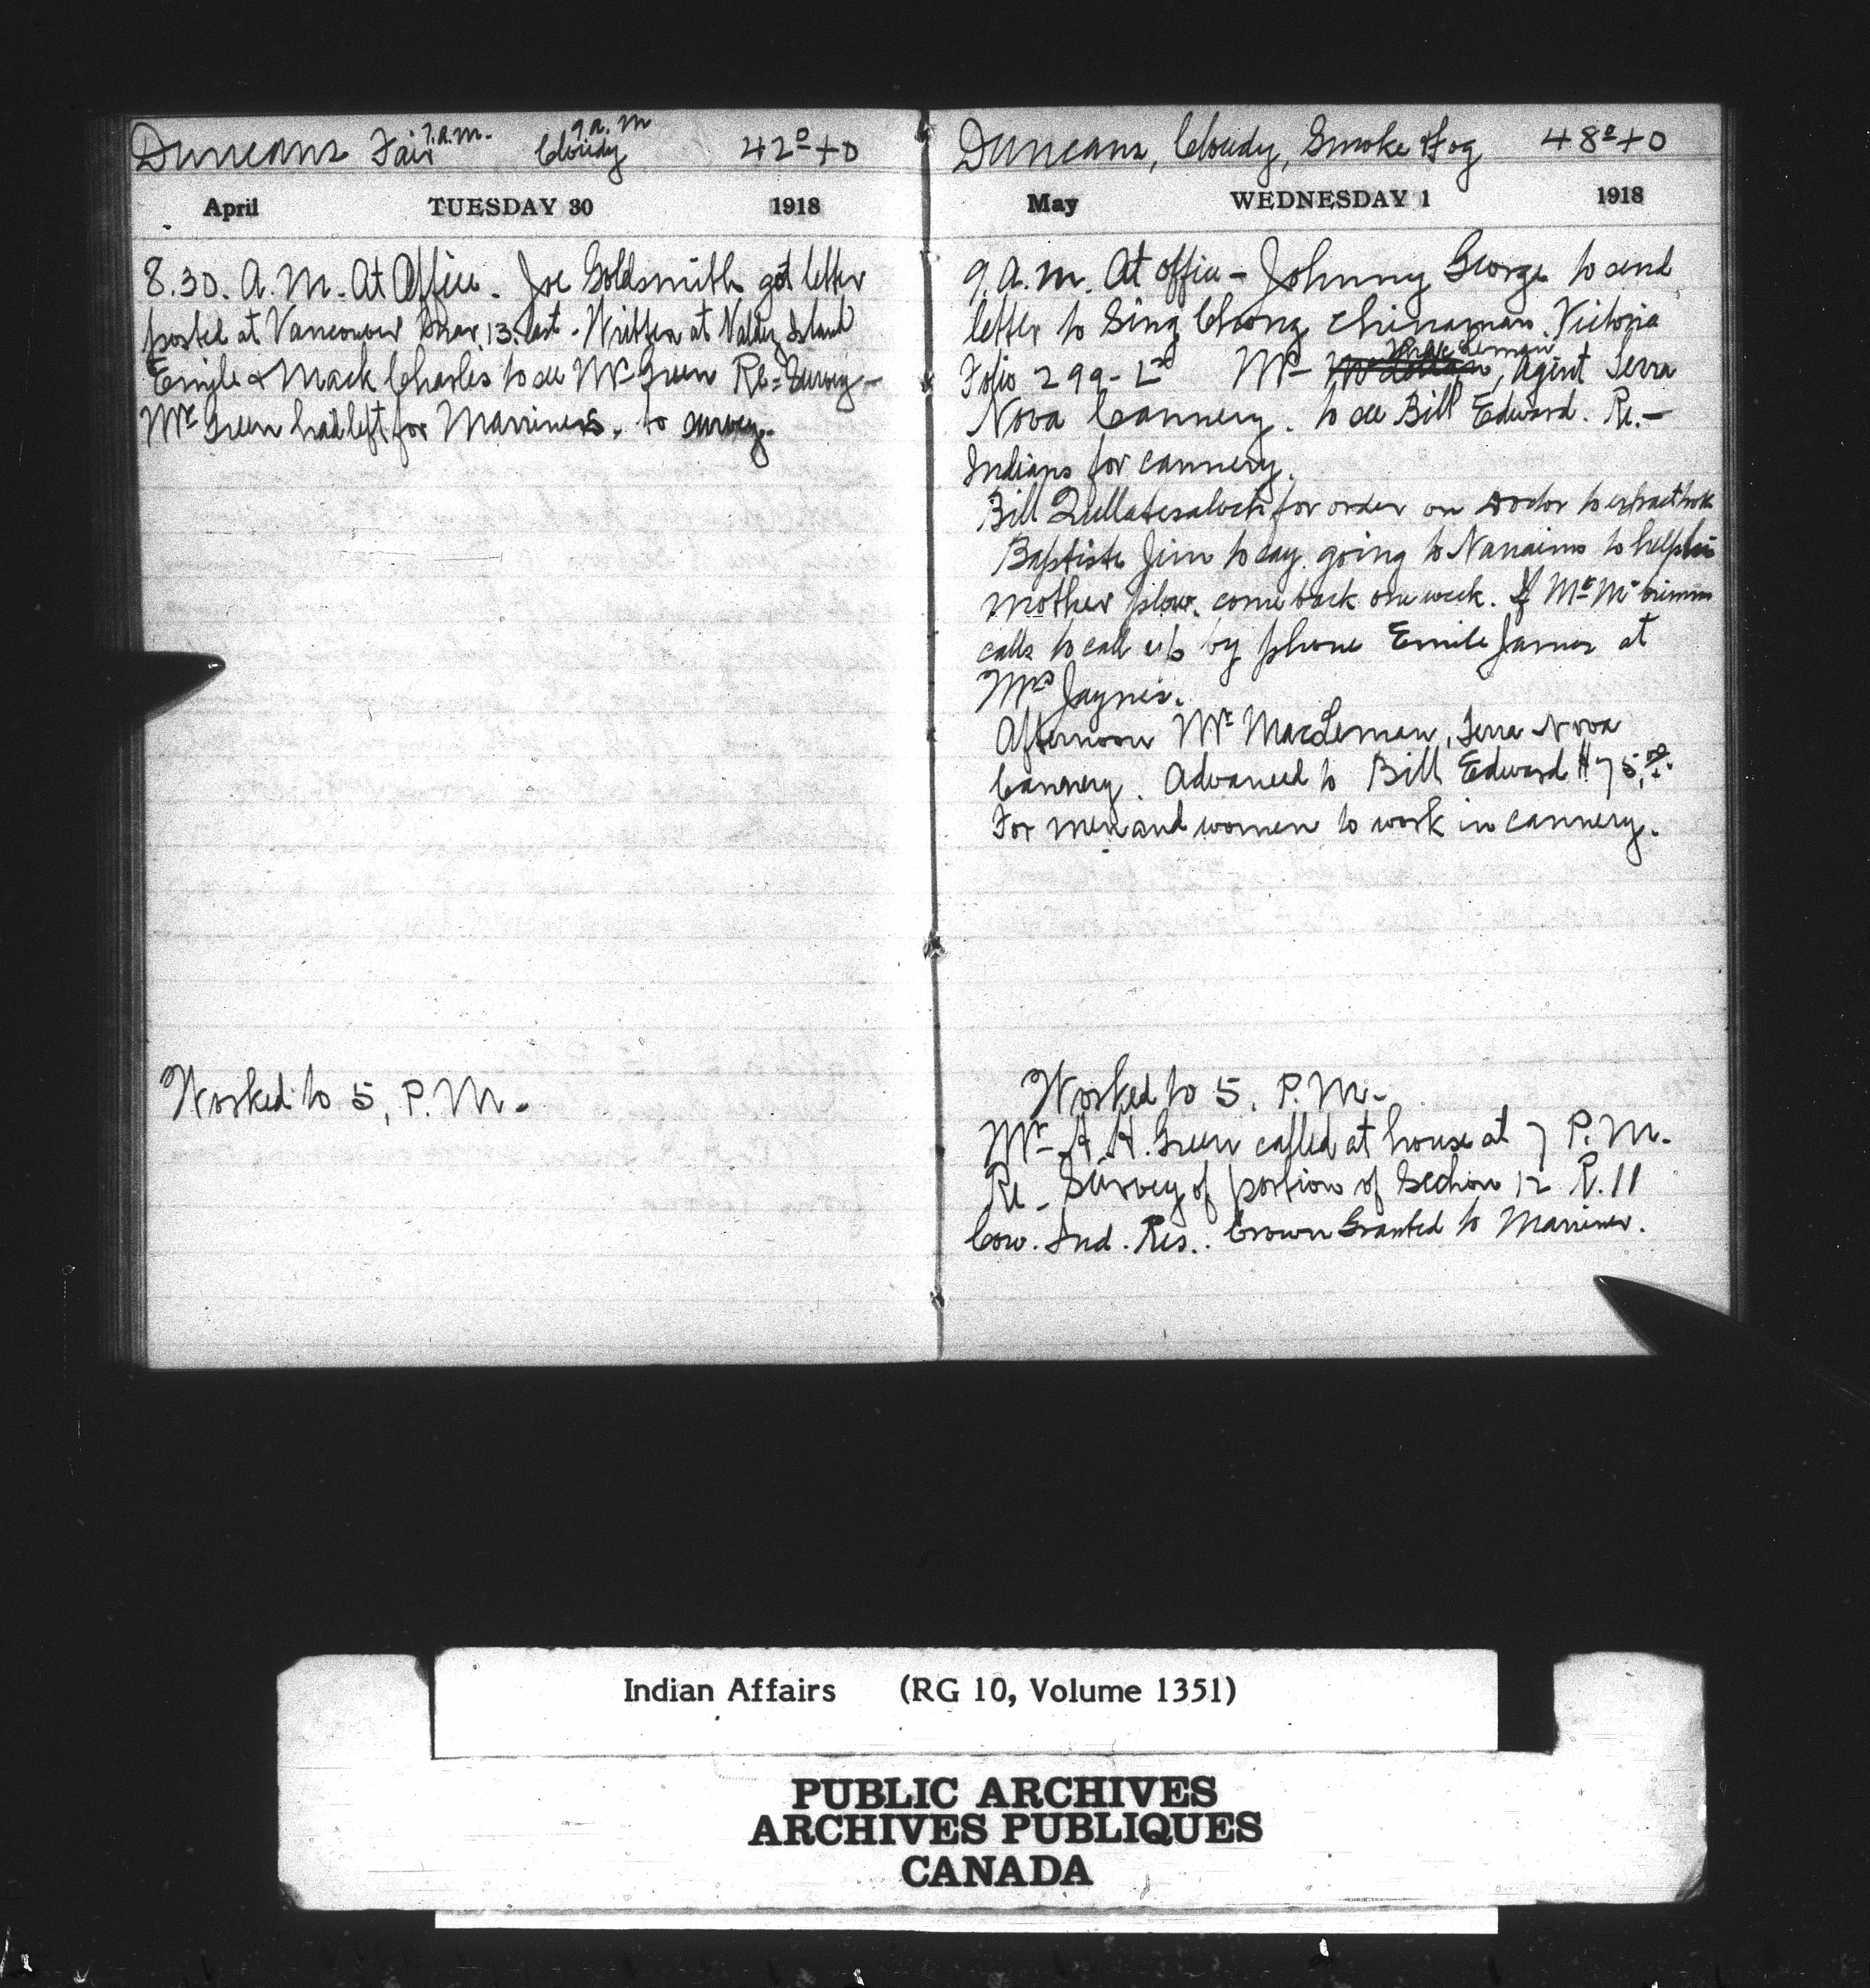 Duncans Fair 7.a.m. Cloudy 9.a.m 42º+0
April TUESDAY 30 1918
8.30. A.M. At Office. Joe Goldsmith got letter
posted at Vancouver Mar. 13. last. Written at Valdez Island
Emile & Mack Charles to see Mr Green Re=Survey-
Mr Green had left for Marriners. to survey.
Worked to 5, P.M.
Duncans, Cloudy, Smoke & Fog 48º+0
May WEDNESDAY 1 1918
9.a.m. At office - Johnny George to send
letter to Sing Chong Chinaman. Victoria
Folio 299- Mr MacLeman, Agent Terra
Nova Cannery. to see Bill Edward. Re.-
Indians for cannery.
Bill for order on Doctor to extract
Baptiste Jim to say. going to Nanaimo to help his
mother plow. come back one week. If Mr
calls to call up by phone Emile James at
Mrs Jaynes.
Afternoon Mr MacLeman, Terra Nova
Cannery. Advanced to Bill Edward $75.00
For men and women to work in cannery.
Worked to 5. P.M.
Mr A.H. Green called at house at 7 P.M.
Re- Survey of portion of Section 12 R.11
Cow. Ind. Res.. Crown Granted to Marriner.
Indian Affairs (RG 10, Volume 1351)
PUBLIC ARCHIVES
ARCHIVES PUBLIQUES
CANADA